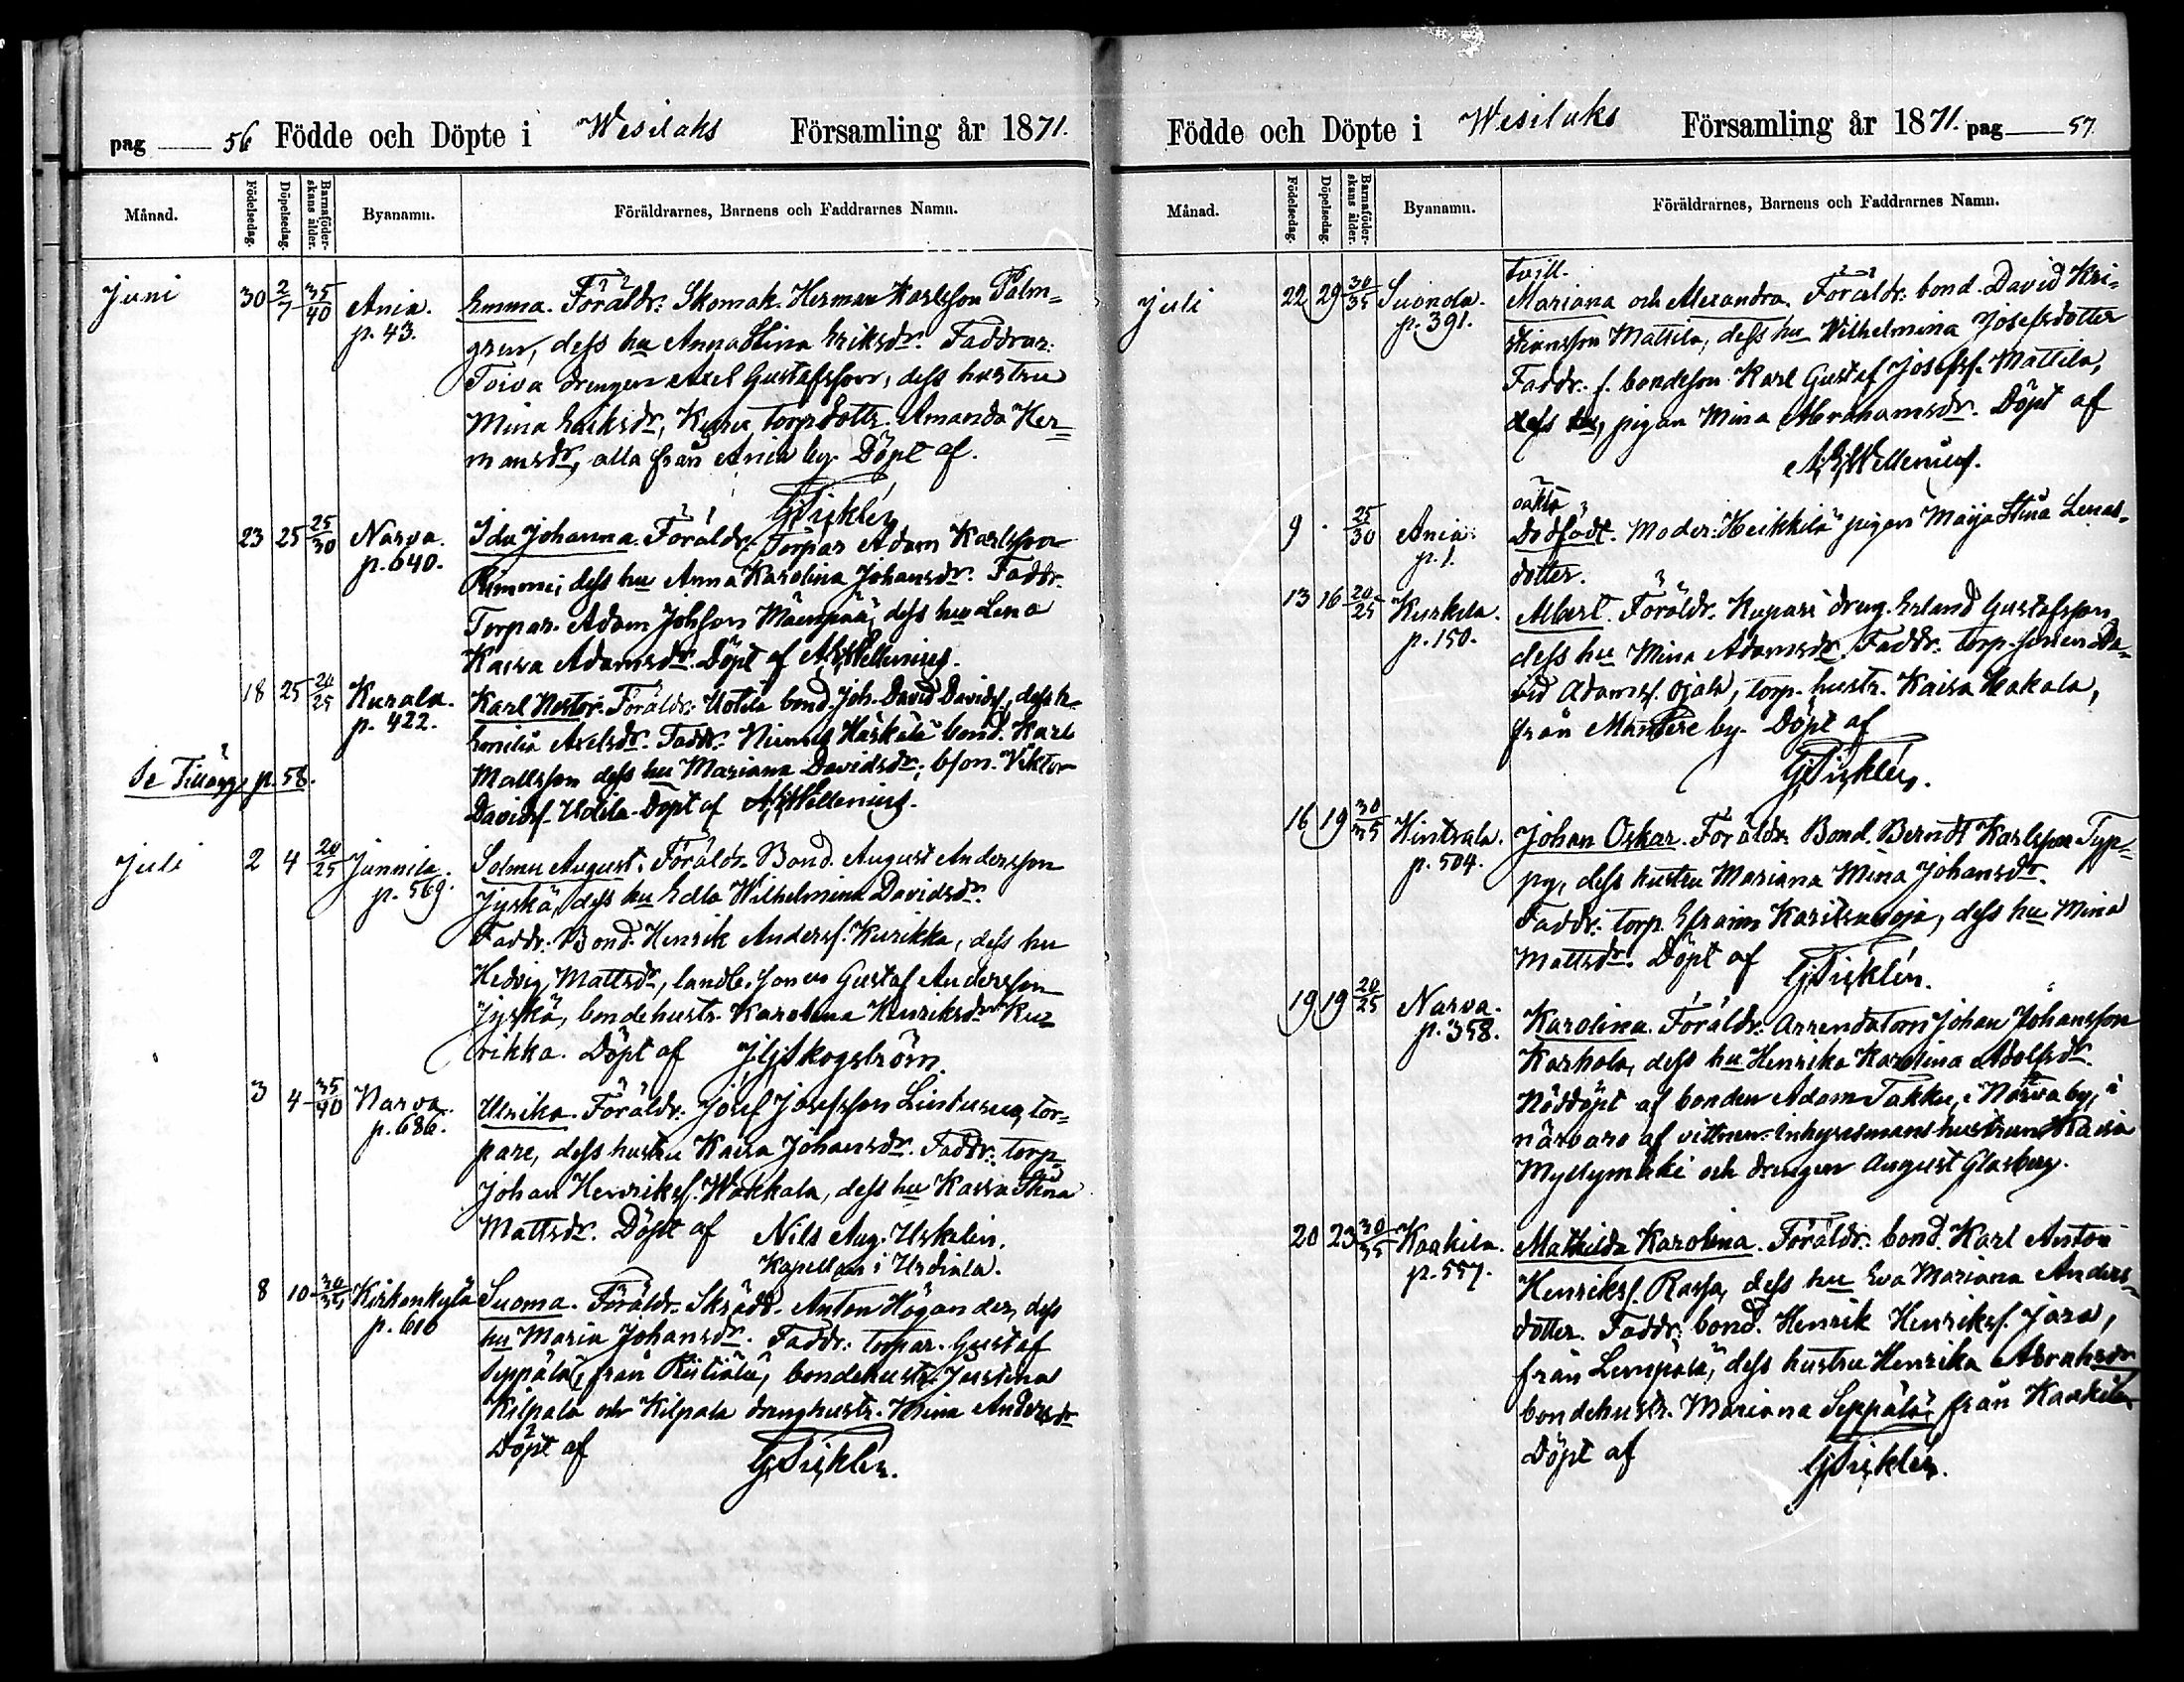 pag 56 Födde och Döpte i Wesilaks Församling år 1871.
Månad. Födelsedag. Döpelsedag. Barnaföderskans ålder. Byanamn. Föräldrarnes, Barnens och Faddrarnes Namn.
Juni 30 2/7 35/40 Ania. Emma. Föräldr: Skomak. Herman Karlsson Palm=
p. 43. gren, dess hu Anna Stina Eriksdr. Faddrar:
Toiva drengen Axel Gustafsson, dess hustru
Mina Eriksdr, torpdottr. Amanda Her=
mansdr, alla från Ania by. Döpt af
G Ticklén
23 25 25/30 Narva. Ida Johanna. Föräldr: Torpar Adam Karlsson
p. 640. dess hu Anna Karolina Johansdr. Faddr.
Torpar. Adam Johsson Mäenpää, dess hu Lena
Kaisa Adamsdr. Döpt af A W Wellenius.
18 25 20/25 Kurala. Karl Nestor. Föräldr: Uotila bond. Joh. David Davidss., dess h.
p. 422. Emilia Axelsdr. Faddr. Härkälä bond. Karl
Mattsson dess hu Mariana Davidsdr, bson. Viktor
Se Tillägg p. 58.
Davidss. Uotila. Döpt af Wellenius.
Juli 2 4 20/25 Junnila. Solmu August. Föräldr. Bond. August Andersson
p. 569. Jyskä, dess hu Edla Wilhelmina Davidsdr.
Faddr: Bond. Henrik Anderss. Kurikka, dess hu
Hedvig Mattsdr, landb. sonen Gustaf Andersson
Jyskä, bondehustr. Karolina Henriksdr Ku=
rikka. Döpt af J Skogström.
3 4 35/40 Narva. Ulrika. Föräldr: Josef Josefsson Lintusuo, tor=
p. 686. pare, dess hustru Kaisa Johansdr. Faddr: torp.
Johan Henrikss. Wakkala, dess hu Kaisa Stina
Mattsdr. Döpt af Nils Aug. Uskelin.
Kapellan i Urdiala.
8 10 30/35 Kirkonkylä Suoma. Föräldr. Skrädd. Anton Högander, dess
p. 616 hu Maria Johansdr. Faddr: torpar. Gustaf
Seppälä, från Ristiälä, bondehustr. Justina
Kilpala och Kilpala drenghustr. Mina Andersdr
Döpt af G Ticklén.
Födde och Döpte i Wesilaks Församling år 1871. pag 57
Månad. Födelsedag. Döpelsedag. Barnaföderskans ålder. Byanamn. Föräldrarnes, Barnens och Faddrarnes Namn.
tvill.
Juli 22 29 30/35 Suonola. Mariana och Alexandra. Föräldr: bond. David Kri=
p. 391. stiansson Mattila, dess hu Wilhelmina Josefsdotter
Faddr: f. bondeson Karl Gustaf Josefss. Mattila,
dess hu, pigan Mina Abrahamsdr. Döpt af
Wellenius.
oäkta
9 25/30 Ania. Dödfödt. Moder: Heikkilä pigan Maija Stina Lenas=
p. 1. dotter.
13 16 20/25 Kurkela. Albert. Föräldr. Kupari dreng. Erland Gustafsson,
p. 150. dess hu Mina Adamsdr. Faddr: torp. sonen Da=
vid Adamss. Ojala, torp. hustr. Kaisa Hakala,
från Mantere by. Döpt af
G Ticklén.
16 19 30/35 Hintsala. Johan Oskar. Föräldr. Bond. Berndt Karlsson Typ=
p. 504. py, dess hustru Mariana Mina Johansdr.
Faddr: torp. Efraim Karitsanoja, dess hu Mina
Mattsdr. Döpt af G Ticklén.
19 19 20/25 Narva. Karolina. Föräldr: Arrendatorn Johan Johansson
p. 358. Karhola, dess hu Henrika Karolina Adolfsdr.
Nöddöpt af bonden Adam Takku, i Narva by, i
närvaro af vittnen: inhysesmanshustrun Maria
Myllymäki och drengen August Glasberg.
20 23 30/35 Kaakila. Mathilda Karolina. Föräldr: bond. Karl Anton
p. 557. Henrikss. Rassa, dess hu Eva Mariana Anders=
dotter. Faddr: bond. Henrik Henrikss. Jara,
från Lempälä, dess hustru Henrika Abrahsdr
bondehustr. Mariana Seppälä, från Kaakila
Döpt af G Ticklén.